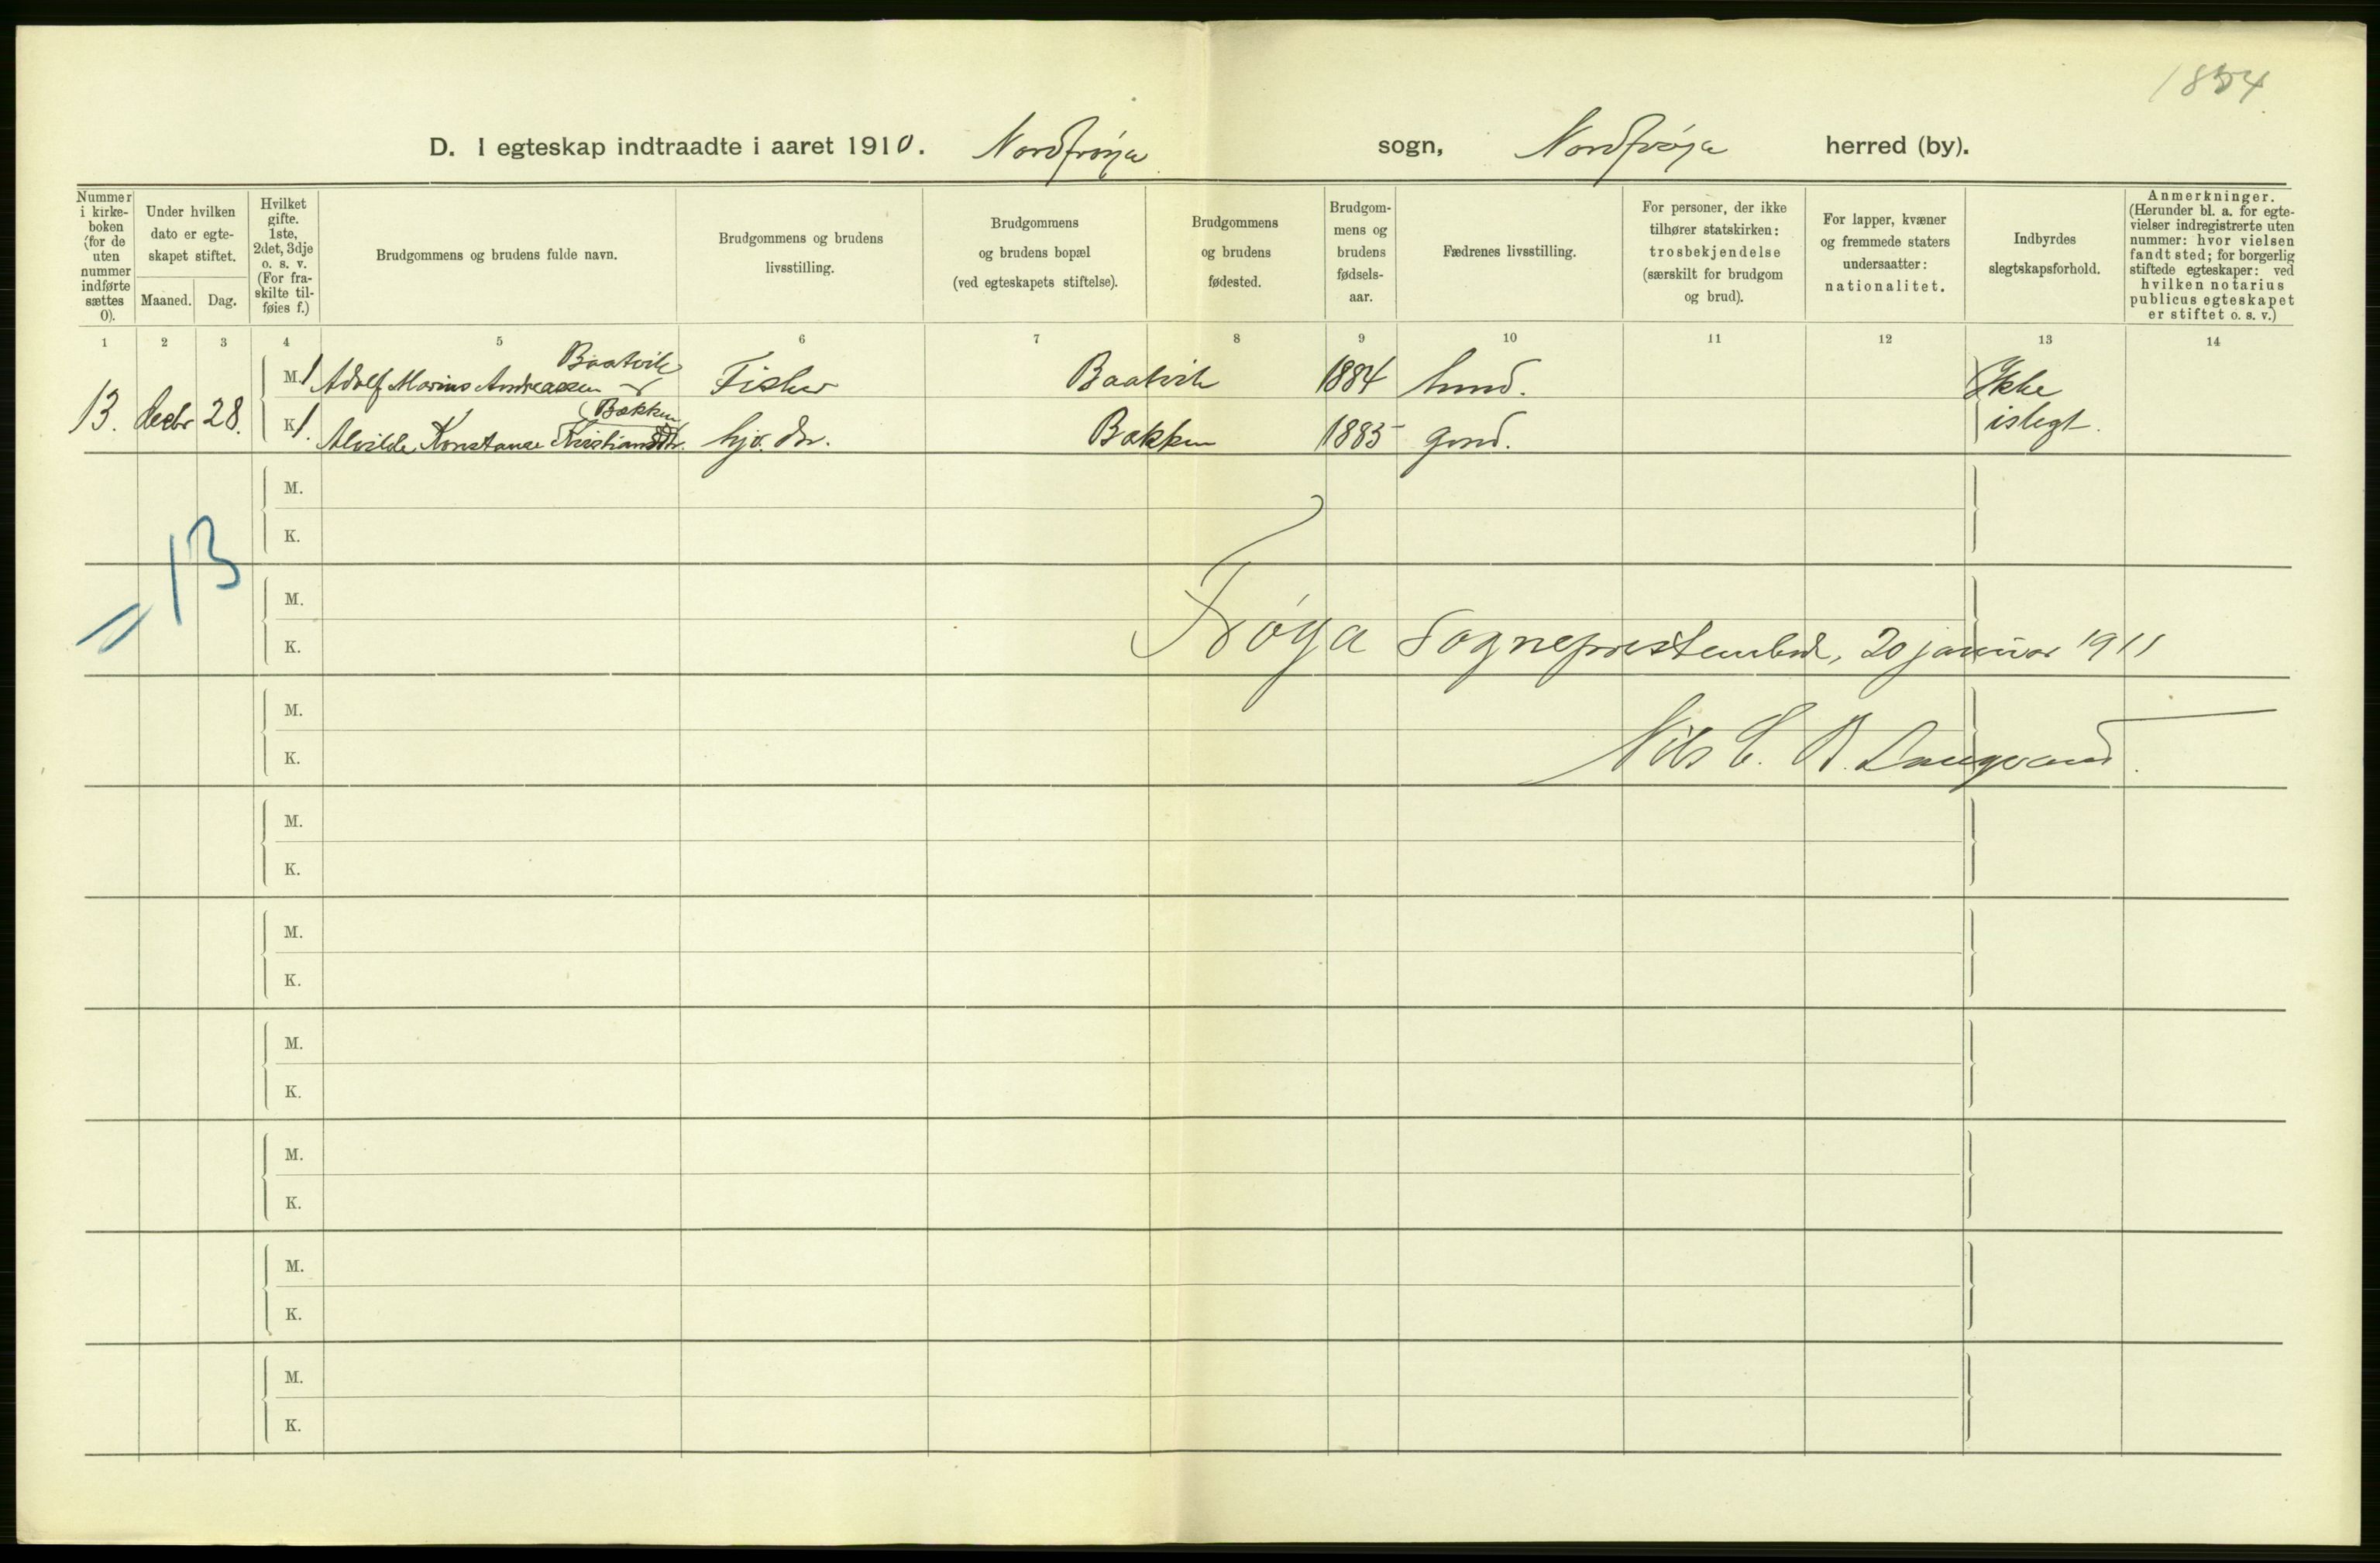 1854
D. I egteskap indtraadte i aaret 1910. Nordfrøya sogn, Nordfrøya herred (by).
Nummer i kirke-boken (for de uten nummer indførte sættes 0).
Under hvilken dato er egte-skapet stiftet.
Maaned. Dag.
Hvilket gifte. 1ste, 2det, 3dje o. s. v. (For fra-skilte til-føies f.)
Brudgommens og brudens fulde navn.
Brudgommens og brudens livsstilling.
Brudgommens og brudens bopæl (ved egteskapets stiftelse).
Brudgommens og brudens fødested.
Brudgom-mens og brudens fødsels-aar.
Fædrenes livsstilling.
For personer, der ikke tilhører statskirken: trosbekjendelse (særskilt for brudgom og brud).
For lapper, kvæner og fremmede staters undersaatter: nationalitet.
Indbyrdes slegtskapsforhold.
Anmerkninger. (Herunder bl. a. for egte-vielser indregistrerte uten nummer: hvor vielsen fandt sted; for borgerlig stiftede egteskaper: ved hvilken notarius publicus egteskapet er stiftet o. s. v.)
1 2 3 4 5 6 7 8 9 10 11 12 13 14
Baatvik
M. 1 Adolf Marius Andreassen Fisker Baatvik 1884 husmd. Ikke
13. decbr 28.
Bakken
K. 1. Alvilde Konstanse Kristiansdtr. hjv. dtr. Bakken 1885 gmd. islegt.
M.
K.
13
M.
K.
Frøya sogneprestembede, 20 januar 1911
M.
K.
Nils C. B.
M.
K.
M.
K.
M.
K.
M.
K.
M.
K.
M.
K.